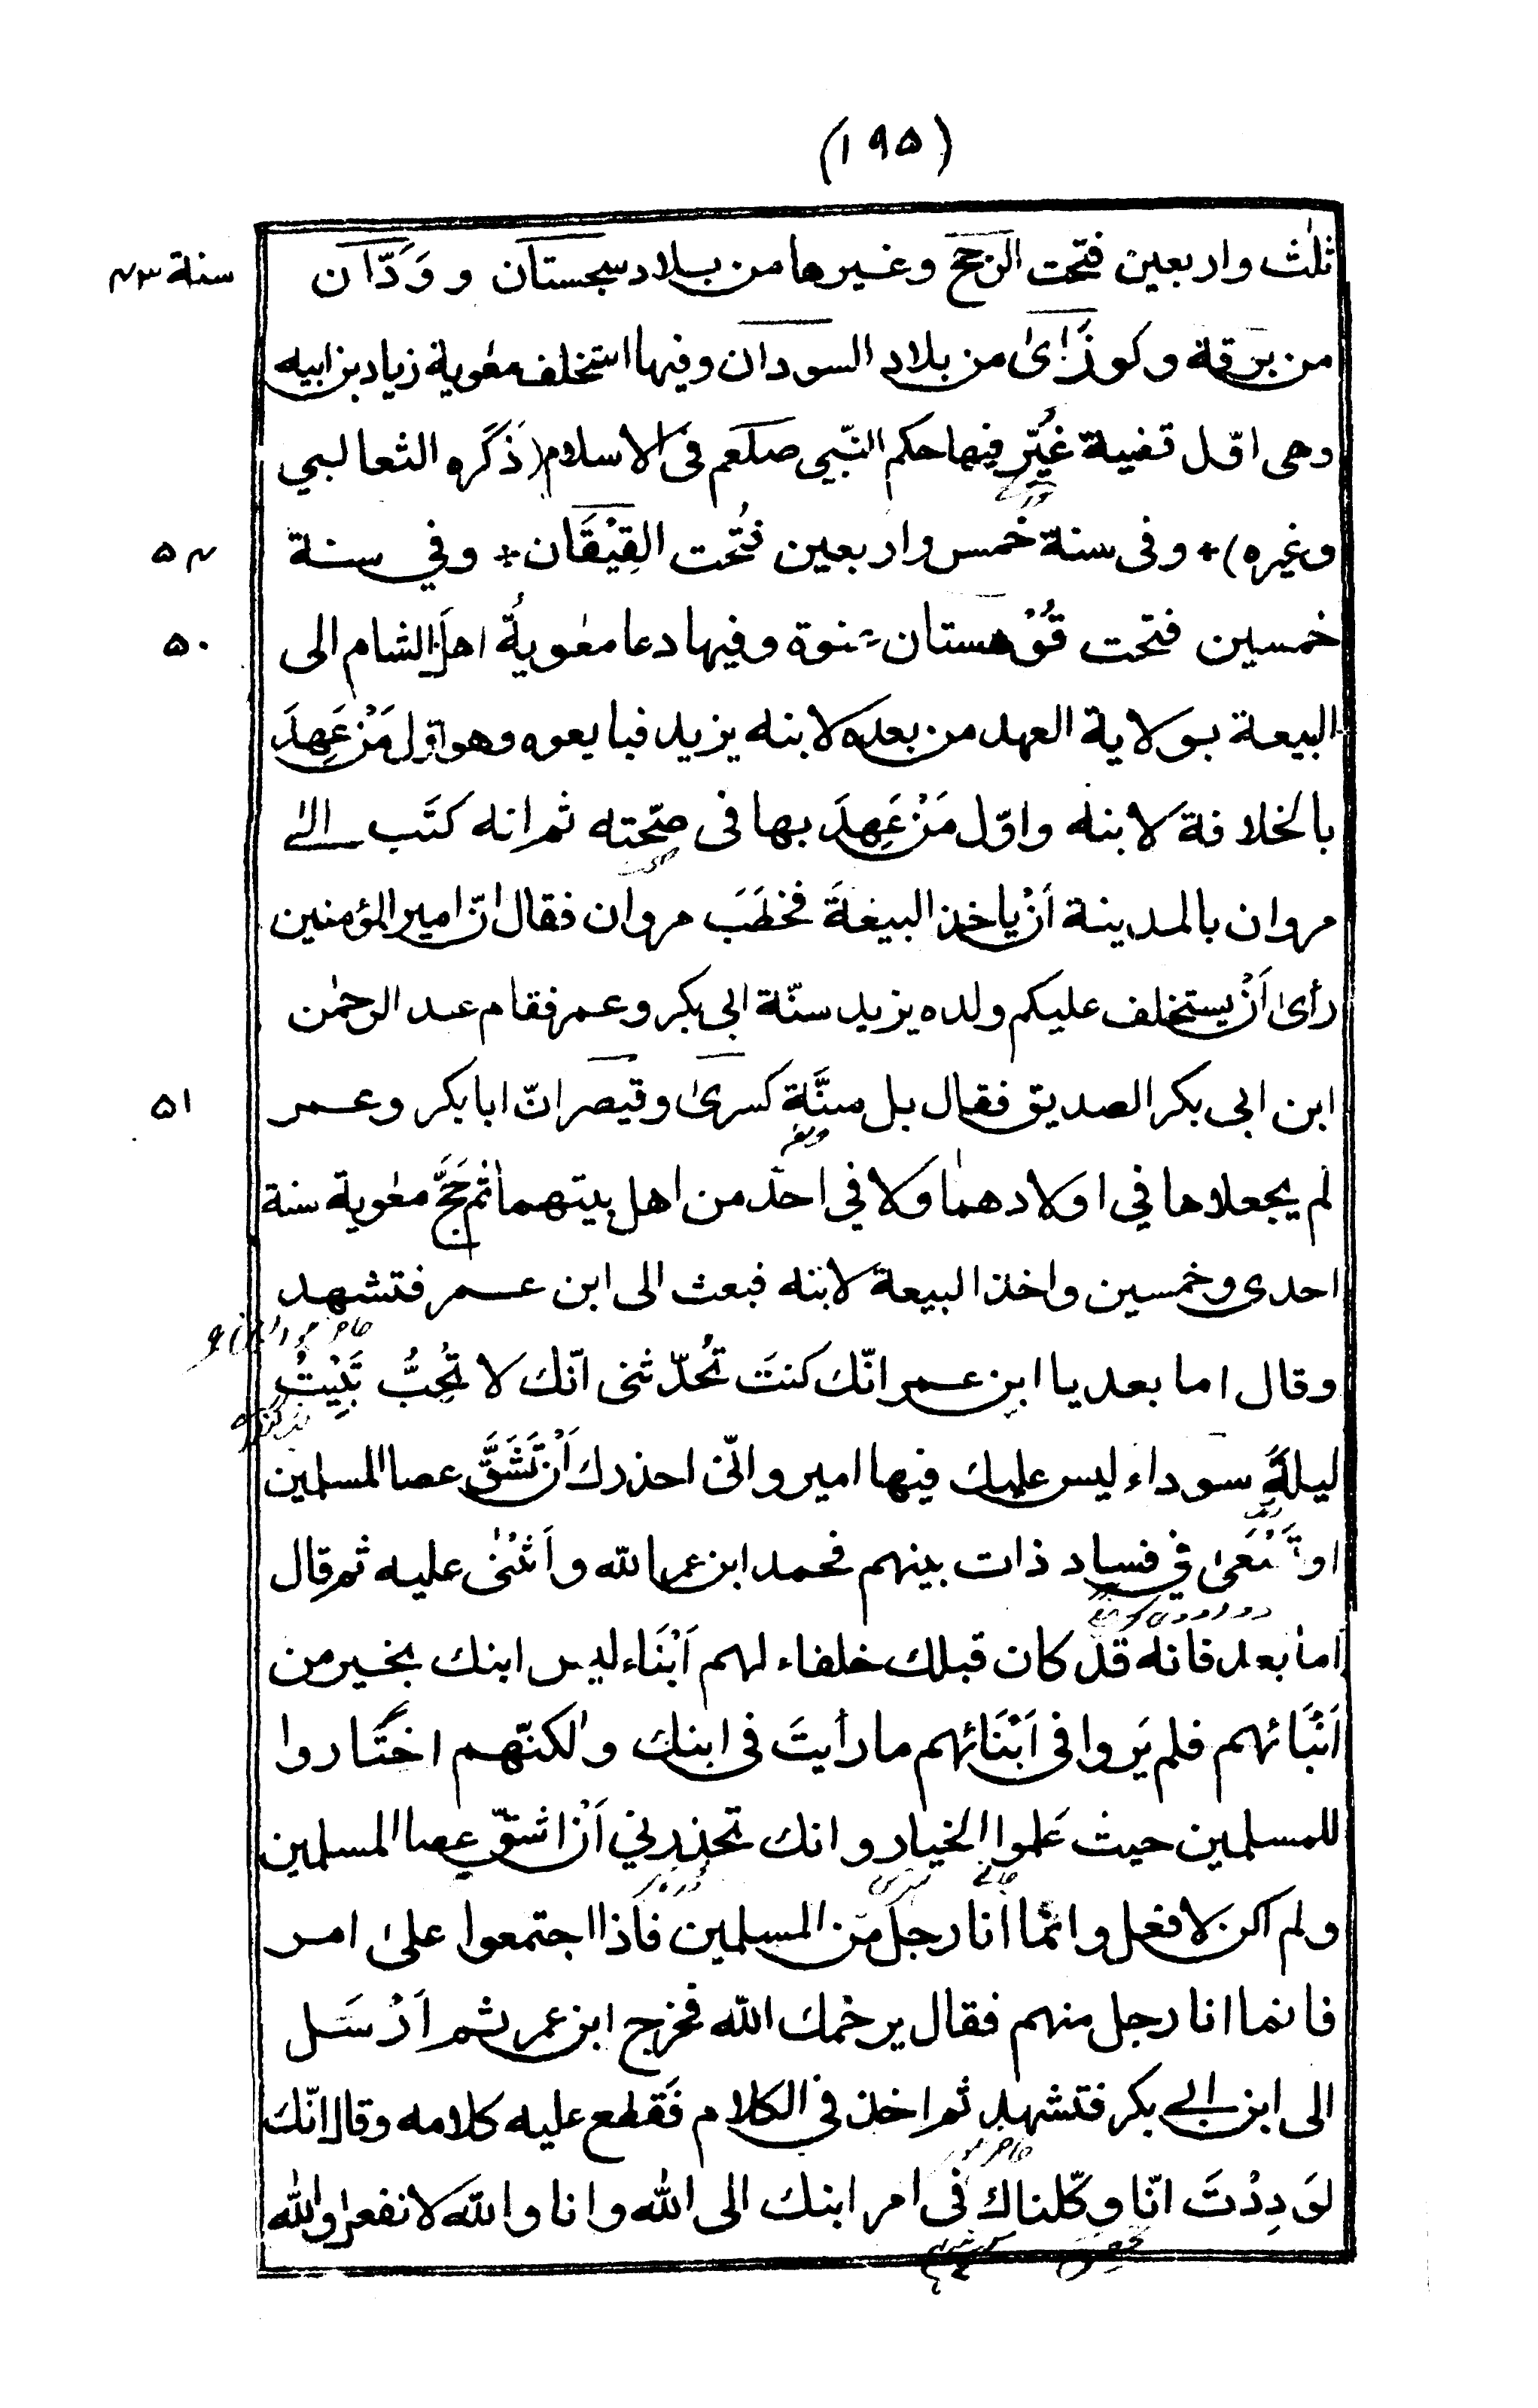 (١٩٥)
ثلٰث واربعين فتحت الرخج وغيرها من بلاد سجستان و وَدَّان
سنة ٤٣
من برقة وكوزَاىٰ من بلاد السودان وفيها استخلف معٰوية زياد بن ابيه
وهى اوّل قضية غُيّر فيها حكم النّبي صلعم فى الاسلام (ذَكَره الثعالبي
وغيره) + وفى سنة خمس واربعين فُتحت القِيْقَان + وفي سنة
٤٥
خمسين فتحت قُوْهستان عنوة وفيها دعا معٰويةُ اهلَ الشام الى
٥٠
البيعة بولاية العهد من بعده لابنه يزيد فبايعوه وهو اوّل مَنْ عَهِدَ
بالخلافة لابنه واوّل مَنْ عَهِدَ بها فى صحّته ثم انه كتَب الىٰ
مروان بالمدينة اَنْ ياخذ البيعةَ فخطَبَ مروان فقال انّ امير المؤمنين
رأىٰ اَنْ يستخلف عليكم ولده يزيد سنّة ابي بكر وعمر فقام عبد الرحمٰن
ابن ابى بكر الصديق فقال بل سنَّة كسرىٰ وقيصر انّ ابا بكر وعمر
٥١
لم يجعلاها في اولادهما ولا في احد من اهل بيتهما ثم حَجَّ معٰوية سنة
احدى وخمسين واخذ البيعة لابنه فبعث الى ابن عمر فتشهد
وقال اما بعد يا ابن عمر انّك كنتَ تُحدّثنى انّك لا تُحِبُّ تَبِيْتُ
ليلةً سوداء ليس عليك فيها امير وانّى احذرك اَنْ تَشَقَّ عصا المسلمين
او تَسْعَىٰ في فساد ذات بينهم فحمد ابن عمر الله واَثْنىٰ عليه ثم قال
اما بعد فانه قد كان قبلك خلفاء لهم اَبْنَاء ليس ابنك بخير من
اَبْنَائهم فلم يَروا فى اَبْنَائهم ما رأيتَ فى ابنك ولٰكنّهم اختَاروا
للمسلمين حيث عَلموا الخيار وانك تحذرني اَنْ اشقّ عصا المسلمين
ولم اكن لافعل وانّما انا رجل من المسلمين فاذا اجتمعوا علىٰ امر
فانما انا رجل منهم فقال يرحمك الله فخرج ابن عمر ثم اَرْسَل
الى ابن ابي بكر فتشهد ثم اخذ فى الكلام فَقطع عليه كلامه وقال انّك
لوَدِدْتَ انّا وكّلناك فى امر ابنك الى الله وانا والله لا نفعل والله